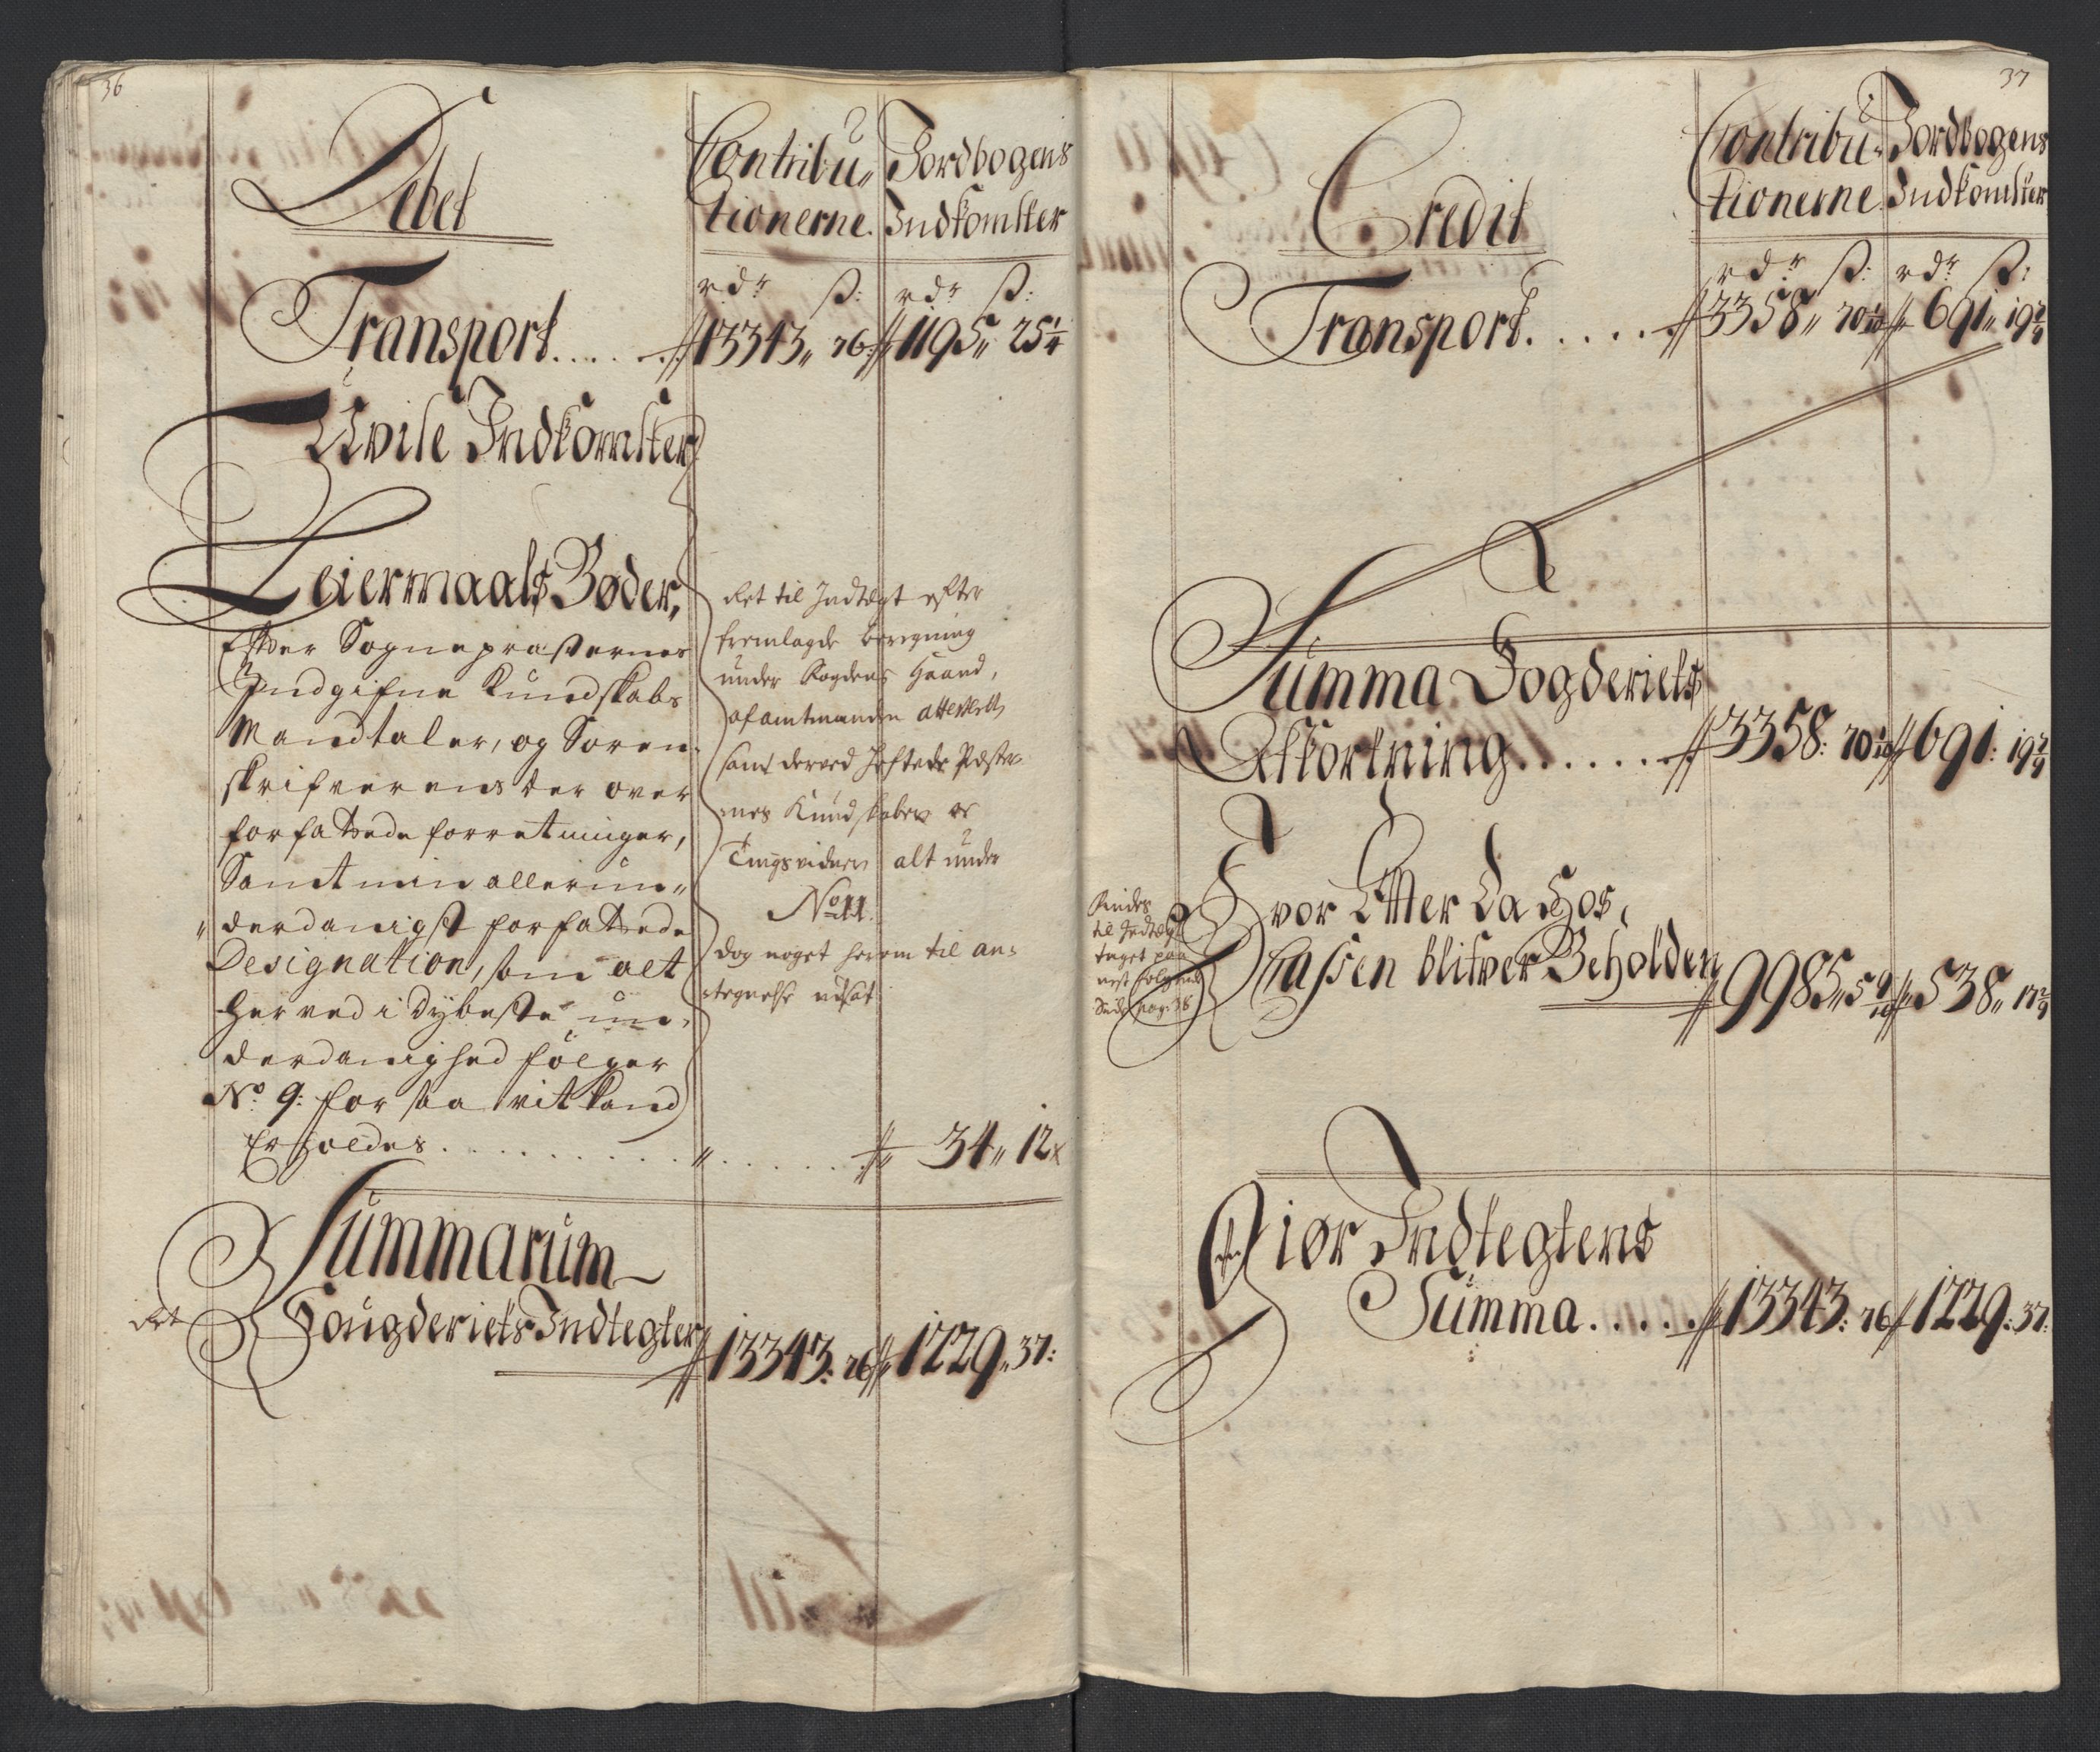 36
Debet
Contribu„
tionerne.
Jordbogens
Indkomster
rdr ß: rdr ß:
Transport. . . . . . 13343„ 76: 1195„ 25¼
Uvise Indkomster
Leiermaals Bøder,
Efter Sognepræsternes
Indgifne Kundskabs
Mandtaler, og Soren„
skrifverens der over
forfattede forretninger,
Samt min allerun„
„derdanigst forfattede
Designation, som alt
herved i dybeste un„
derdanighed følger
No. 9: for saa vit kand
Erholdes . . . . . . . . . . „ . . . . . . „ 34„ 12
det til Indtægt efter
fremlagde beregning
under Fogdens Haand,
af amtmanden attesteret
samt derved heftede Præster„
nes Kundskaber oc
Tingsvidner alt under
No 11.
dog noget herom til an„
tegnelse udsat
Summarum
det
Fougderiets Indtegter 13343: 76 1229„ 37:
37
Credit
Contribu„
tionerne.
Jordbogens
Indkomster
rdr ß: rdr ß:
Transport. . . . . . 3358„ 70 1/10 691„ 19
Summa Fogderiets
Afkortning. . . . . . . 3358: 70 1/10 691: 19
Hvor Efter La Hos,
Cassen blifver Beholden 9985„ 5 9/10 538„ 17
til Indtægt
taget paa
nest følgende
Side pag: 38
Giør Indtegtens
Summa. . . . . 13343: 76 1229: 37: